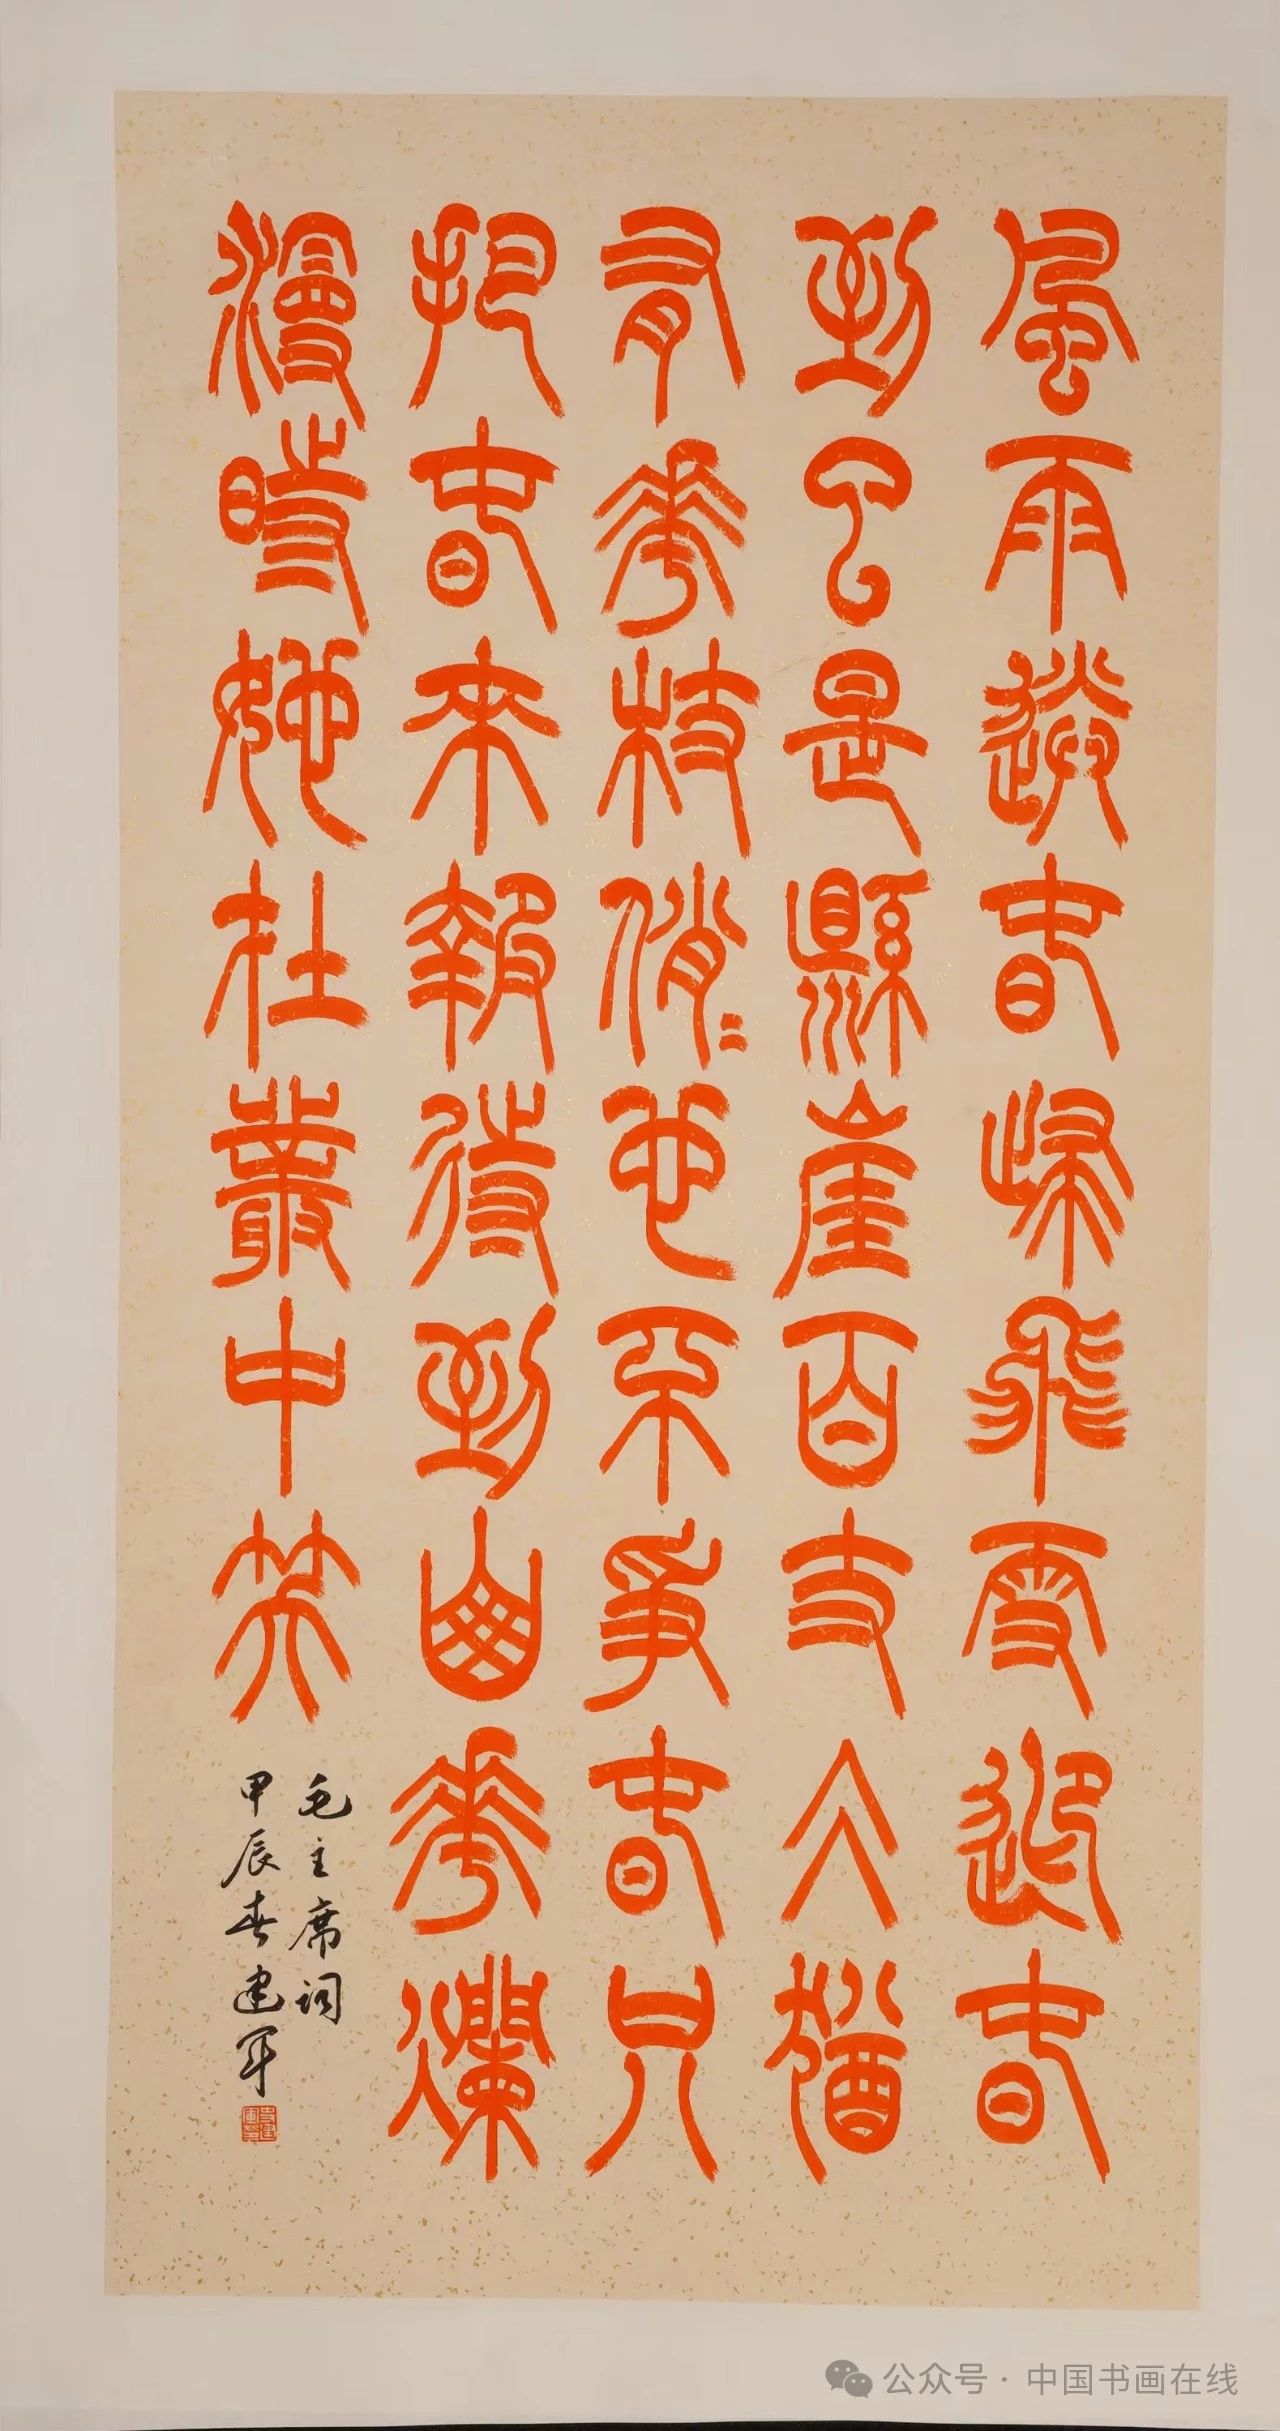 風雨送春歸飛雪迎春
到已是縣崖百丈仌猶
有花枝俏〻也不爭春只
把春來報待到山花爛
漫時她在叢中笑
毛主席词
甲辰春建军
公众号·中国书画在线